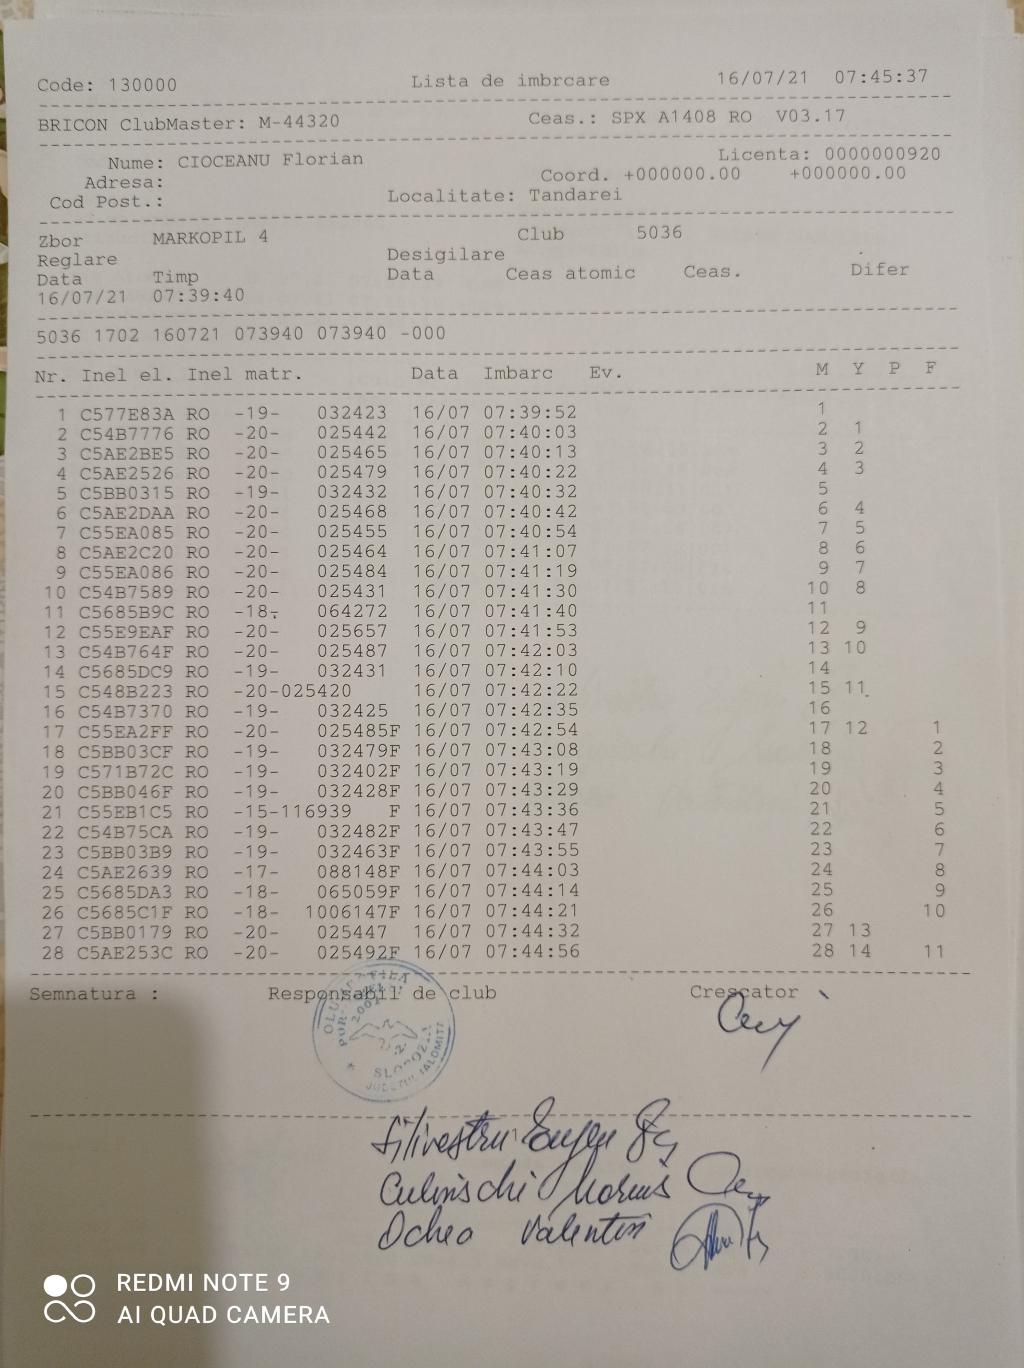 Code: 130000 Lista de imbrcare 16/07/21 07:45:37
BRICON ClubMaster: M-44320 Ceas.: SPX A1408 RO V03.17
Nume: CIOCEANU Florian Licenta: 0000000920
Adresa: Coord. +000000.00 +000000.00
Cod Post.: Localitate: Tandarei
Zbor MARKOPIL 4 Club 5036
Reglare Desigilare
Data Timp Data Ceas atomic Ceas. Difer
16/07/21 07:39:40
5036 1702 160721 073940 073940 -000
Nr. Inel el. Inel matr. Data Imbarc Ev. M Y P F
1 C577E83A RO -19- 032423 16/07 07:39:52 1
2 C54B7776 RO -20- 025442 16/07 07:40:03 2 1
3 C5AE2BE5 RO -20- 025465 16/07 07:40:13 3 2
4 C5AE2526 RO -20- 025479 16/07 07:40:22 4 3
5 C5BB0315 RO -19- 032432 16/07 07:40:32 5
6 C5AE2DAA RO -20- 025468 16/07 07:40:42 6 4
7 C55EA085 RO -20- 025455 16/07 07:40:54 7 5
8 C5AE2C20 RO -20- 025464 16/07 07:41:07 8 6
9 C55EA086 RO -20- 025484 16/07 07:41:19 9 7
10 C54B7589 RO -20- 025431 16/07 07:41:30 10 8
11 C5685B9C RO -18- 064272 16/07 07:41:40 11
12 C55E9EAF RO -20- 025657 16/07 07:41:53 12 9
13 C54B764F RO -20- 025487 16/07 07:42:03 13 10
14 C5685DC9 RO -19- 032431 16/07 07:42:10 14
15 C548B223 RO -20-025420 16/07 07:42:22 15 11
16 C54B7370 RO -19- 032425 16/07 07:42:35 16
17 C55EA2FF RO -20- 025485F 16/07 07:42:54 17 12 1
18 C5BB03CF RO -19- 032479F 16/07 07:43:08 18 2
19 C571B72C RO -19- 032402F 16/07 07:43:19 19 3
20 C5BB046F RO -19- 032428F 16/07 07:43:29 20 4
21 C55EB1C5 RO -15-116939 F 16/07 07:43:36 21 5
22 C54B75CA RO -19- 032482F 16/07 07:43:47 22 6
23 C5BB03B9 RO -19- 032463F 16/07 07:43:55 23 7
24 C5AE2639 RO -17- 088148F 16/07 07:44:03 24 8
25 C5685DA3 RO -18- 065059F 16/07 07:44:14 25 9
26 C5685C1F RO -18- 1006147F 16/07 07:44:21 26 10
27 C5BB0179 RO -20- 025447 16/07 07:44:32 27 13
28 C5AE253C RO -20- 025492F 16/07 07:44:56 28 14 11
Semnatura : Responsabil de club Crescator
SLOBOZIA
JUDETUL IALOMITA
Silivestru Eugen
Culinschi Marius
Ochea Valentin
REDMI NOTE 9
AI QUAD CAMERA